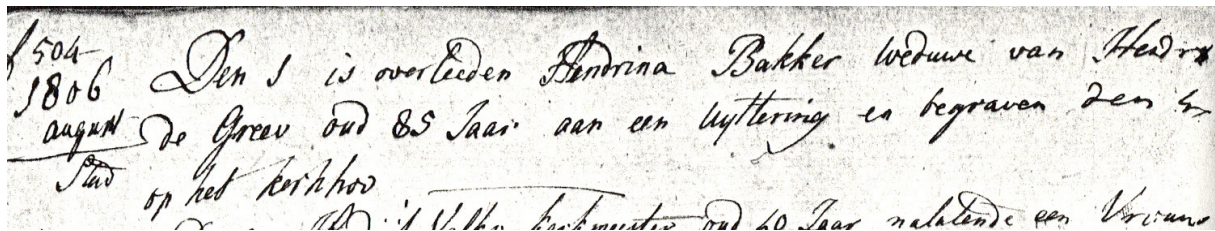 504
1806
august
Stad
Den 1 is overleeden Hendrina Bakker weduwe van Hendrk
de Greev oud 85 Jaar aan een uyttering en begraven den
op het kerkhov
kerkmeester oud Jaar nalatende een